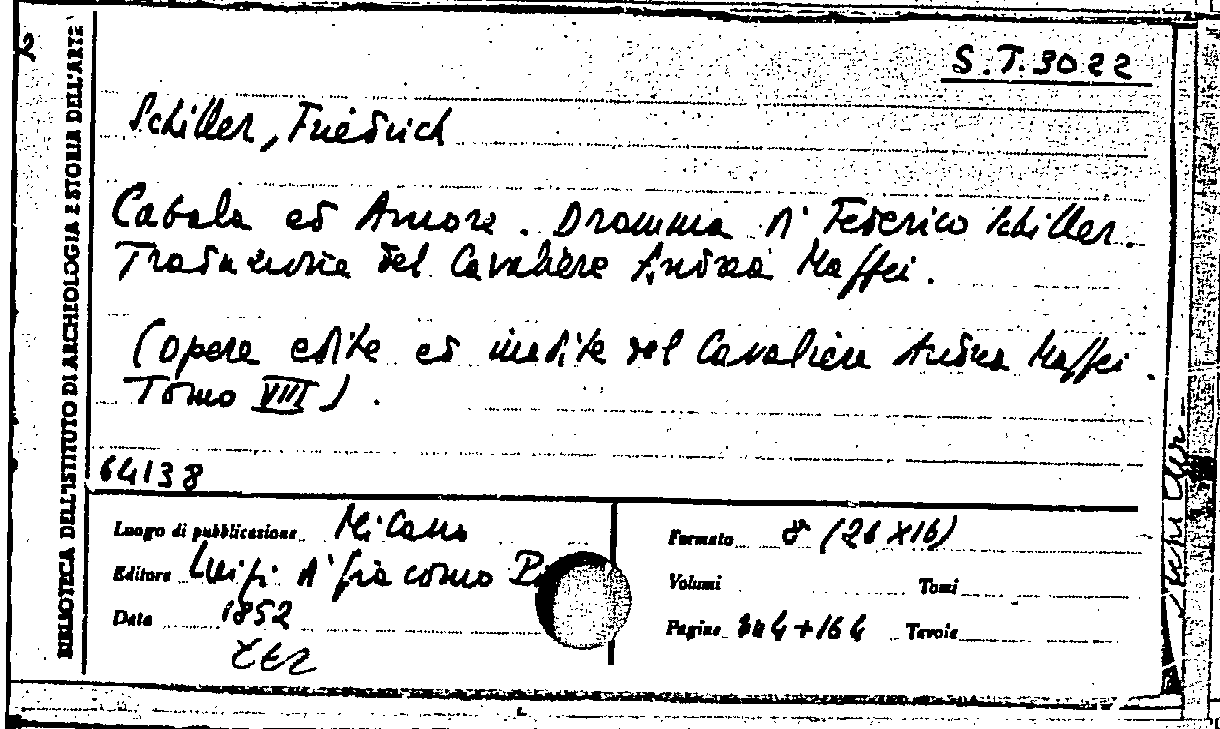 S.T. 3022
Schiller, Friedrich
Cabala ed Amore. Dramma di Federico Schiller.
Traduzione del Cavaliere Andrea Maffei.
(Opere edite ed inedite del Cavaliere Andrea Maffei.
Tomo VIII).
64138
Luogo di pubblicazione Milano
Editore Luigi di Giacomo
Data 1852
Formato 8° (26 x 16)
Volumi Tomi
Pagine +164 Tavole
BIBLIOTECA DELL'ISTITUTO DI ARCHEOLOGIA E STORIA DELL'ARTE